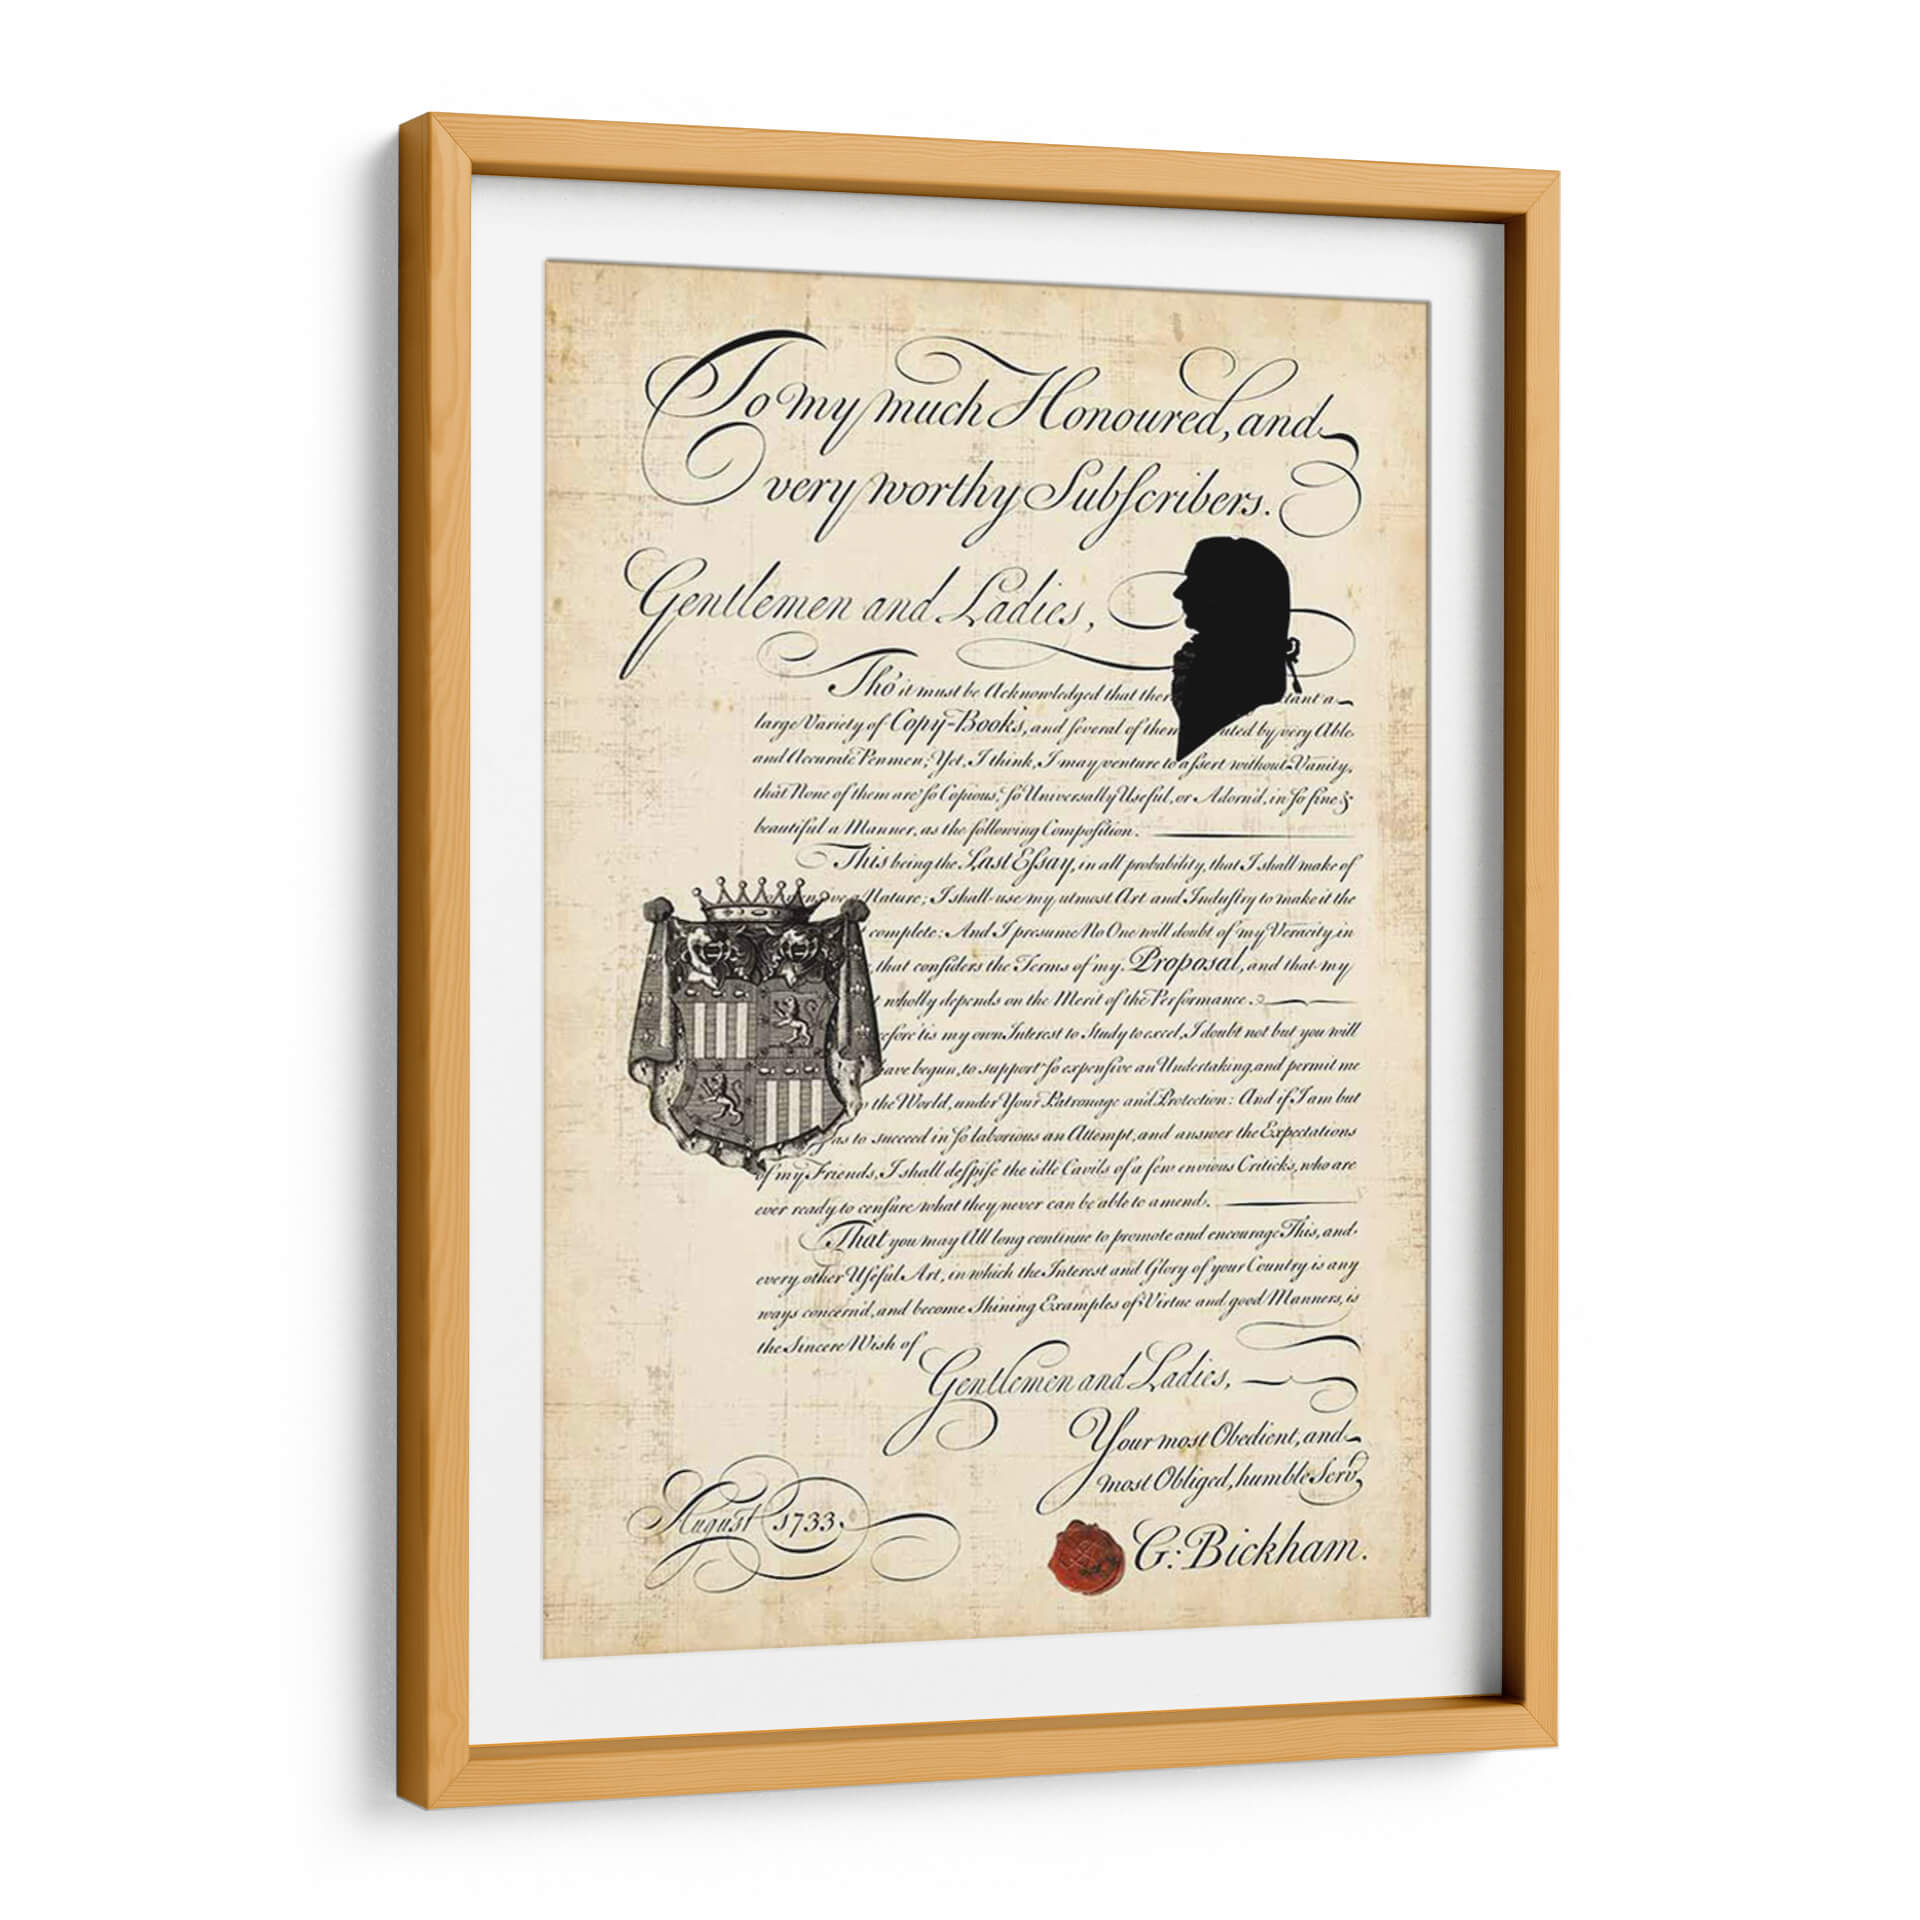 To my much Honoured, and
very worthy Subſcribers.
Gentlemen and Ladies,
Tho' it must be Acknowledged that ther tant a
large Variety of Copy-Books, and ſeveral of them uted by very Able
and Accurate Penmen; Yet, I think, I may venture to aſsert without Vanity,
that None of them are ſo Copious, ſo Universally Uſeful, or Adorn'd, in ſo fine &
beautiful a Manner, as the following Compoſition.
This being the Last Eſsay, in all probability, that I shall make of
Nature; I shall use my utmost Art and Induſtry to make it the
complete: And I presume No One will doubt of my Veracity in
that conſiders the Terms of my Proposal, and that my
wholly depends on the Merit of the Performance.
efore 'tis my own Interest to Study to excel, I doubt not but you will
ave begun, to support ſo expenſive an Undertaking, and permit me
the World, under Your Patronage and Protection: And if I am but
as to succeed in ſo laborious an Attempt, and answer the Expectations
of my Friends, I shall deſpiſe the idle Cavils of a few envious Criticks, who are
ever ready to cenſure what they never can be able to amend.
That you may All long continue to promote and encourage This, and
every other Uſeful Art, in which the Interest and Glory of your Country is any
ways concern'd, and become Shining Examples of Virtue and good Manners, is
the Sincere Wish of
Gentlemen and Ladies,
Your most Obedient, and
most Obliged, humble Servt,
August 1733.
G: Bickham.